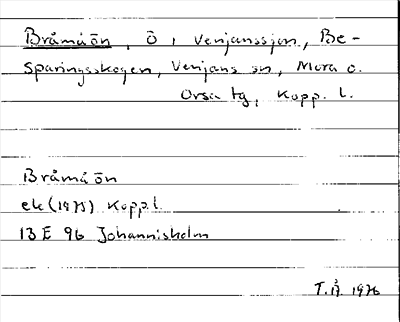 Bråmåön, Ö i Venjanssjön, Be-
sparingsskogen, Venjans sn, Mora o.
Orsa tg, Kopp. l.
Bråmåön
ek (1975) Kopp. l.
13 E 9b Johannisholm
T.Å. 1976